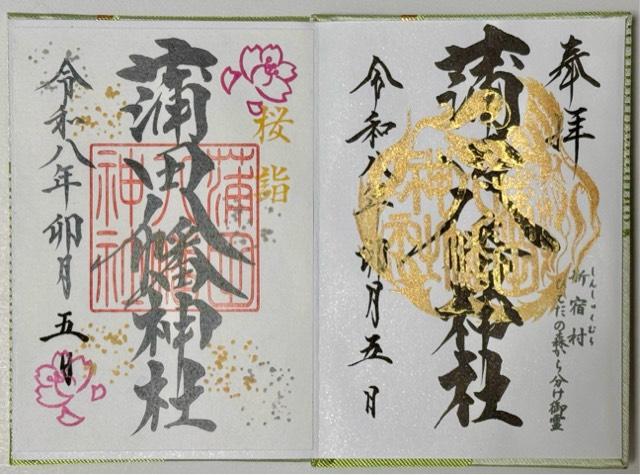 奉拝
しんしゅくむら
新宿村
ひえだの森から分け御霊
蒲田八幡神社
令和八年卯月五日
桜詣
蒲田八幡神社
蒲田
八幡
神社
令和八年卯月五日